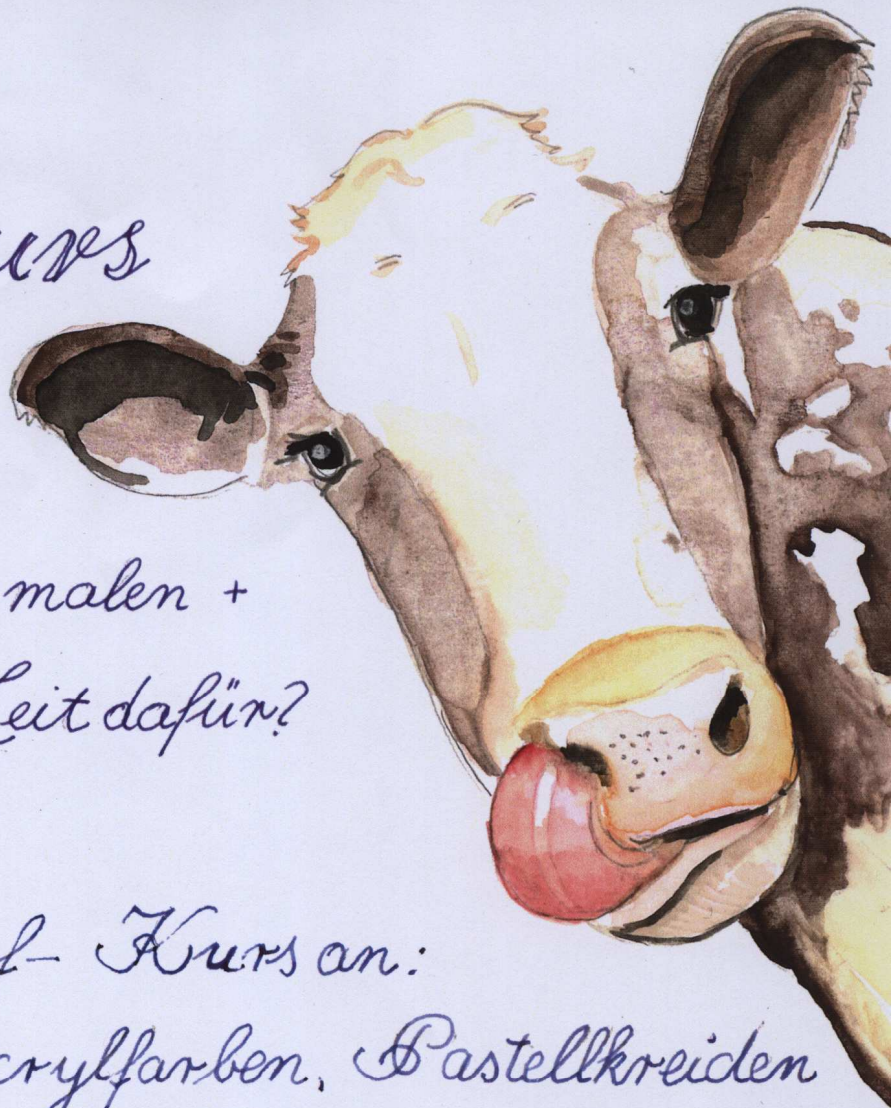 urs
malen +
Zeit dafür?
l- Kurs an:
crylfarben, Pastellkreiden